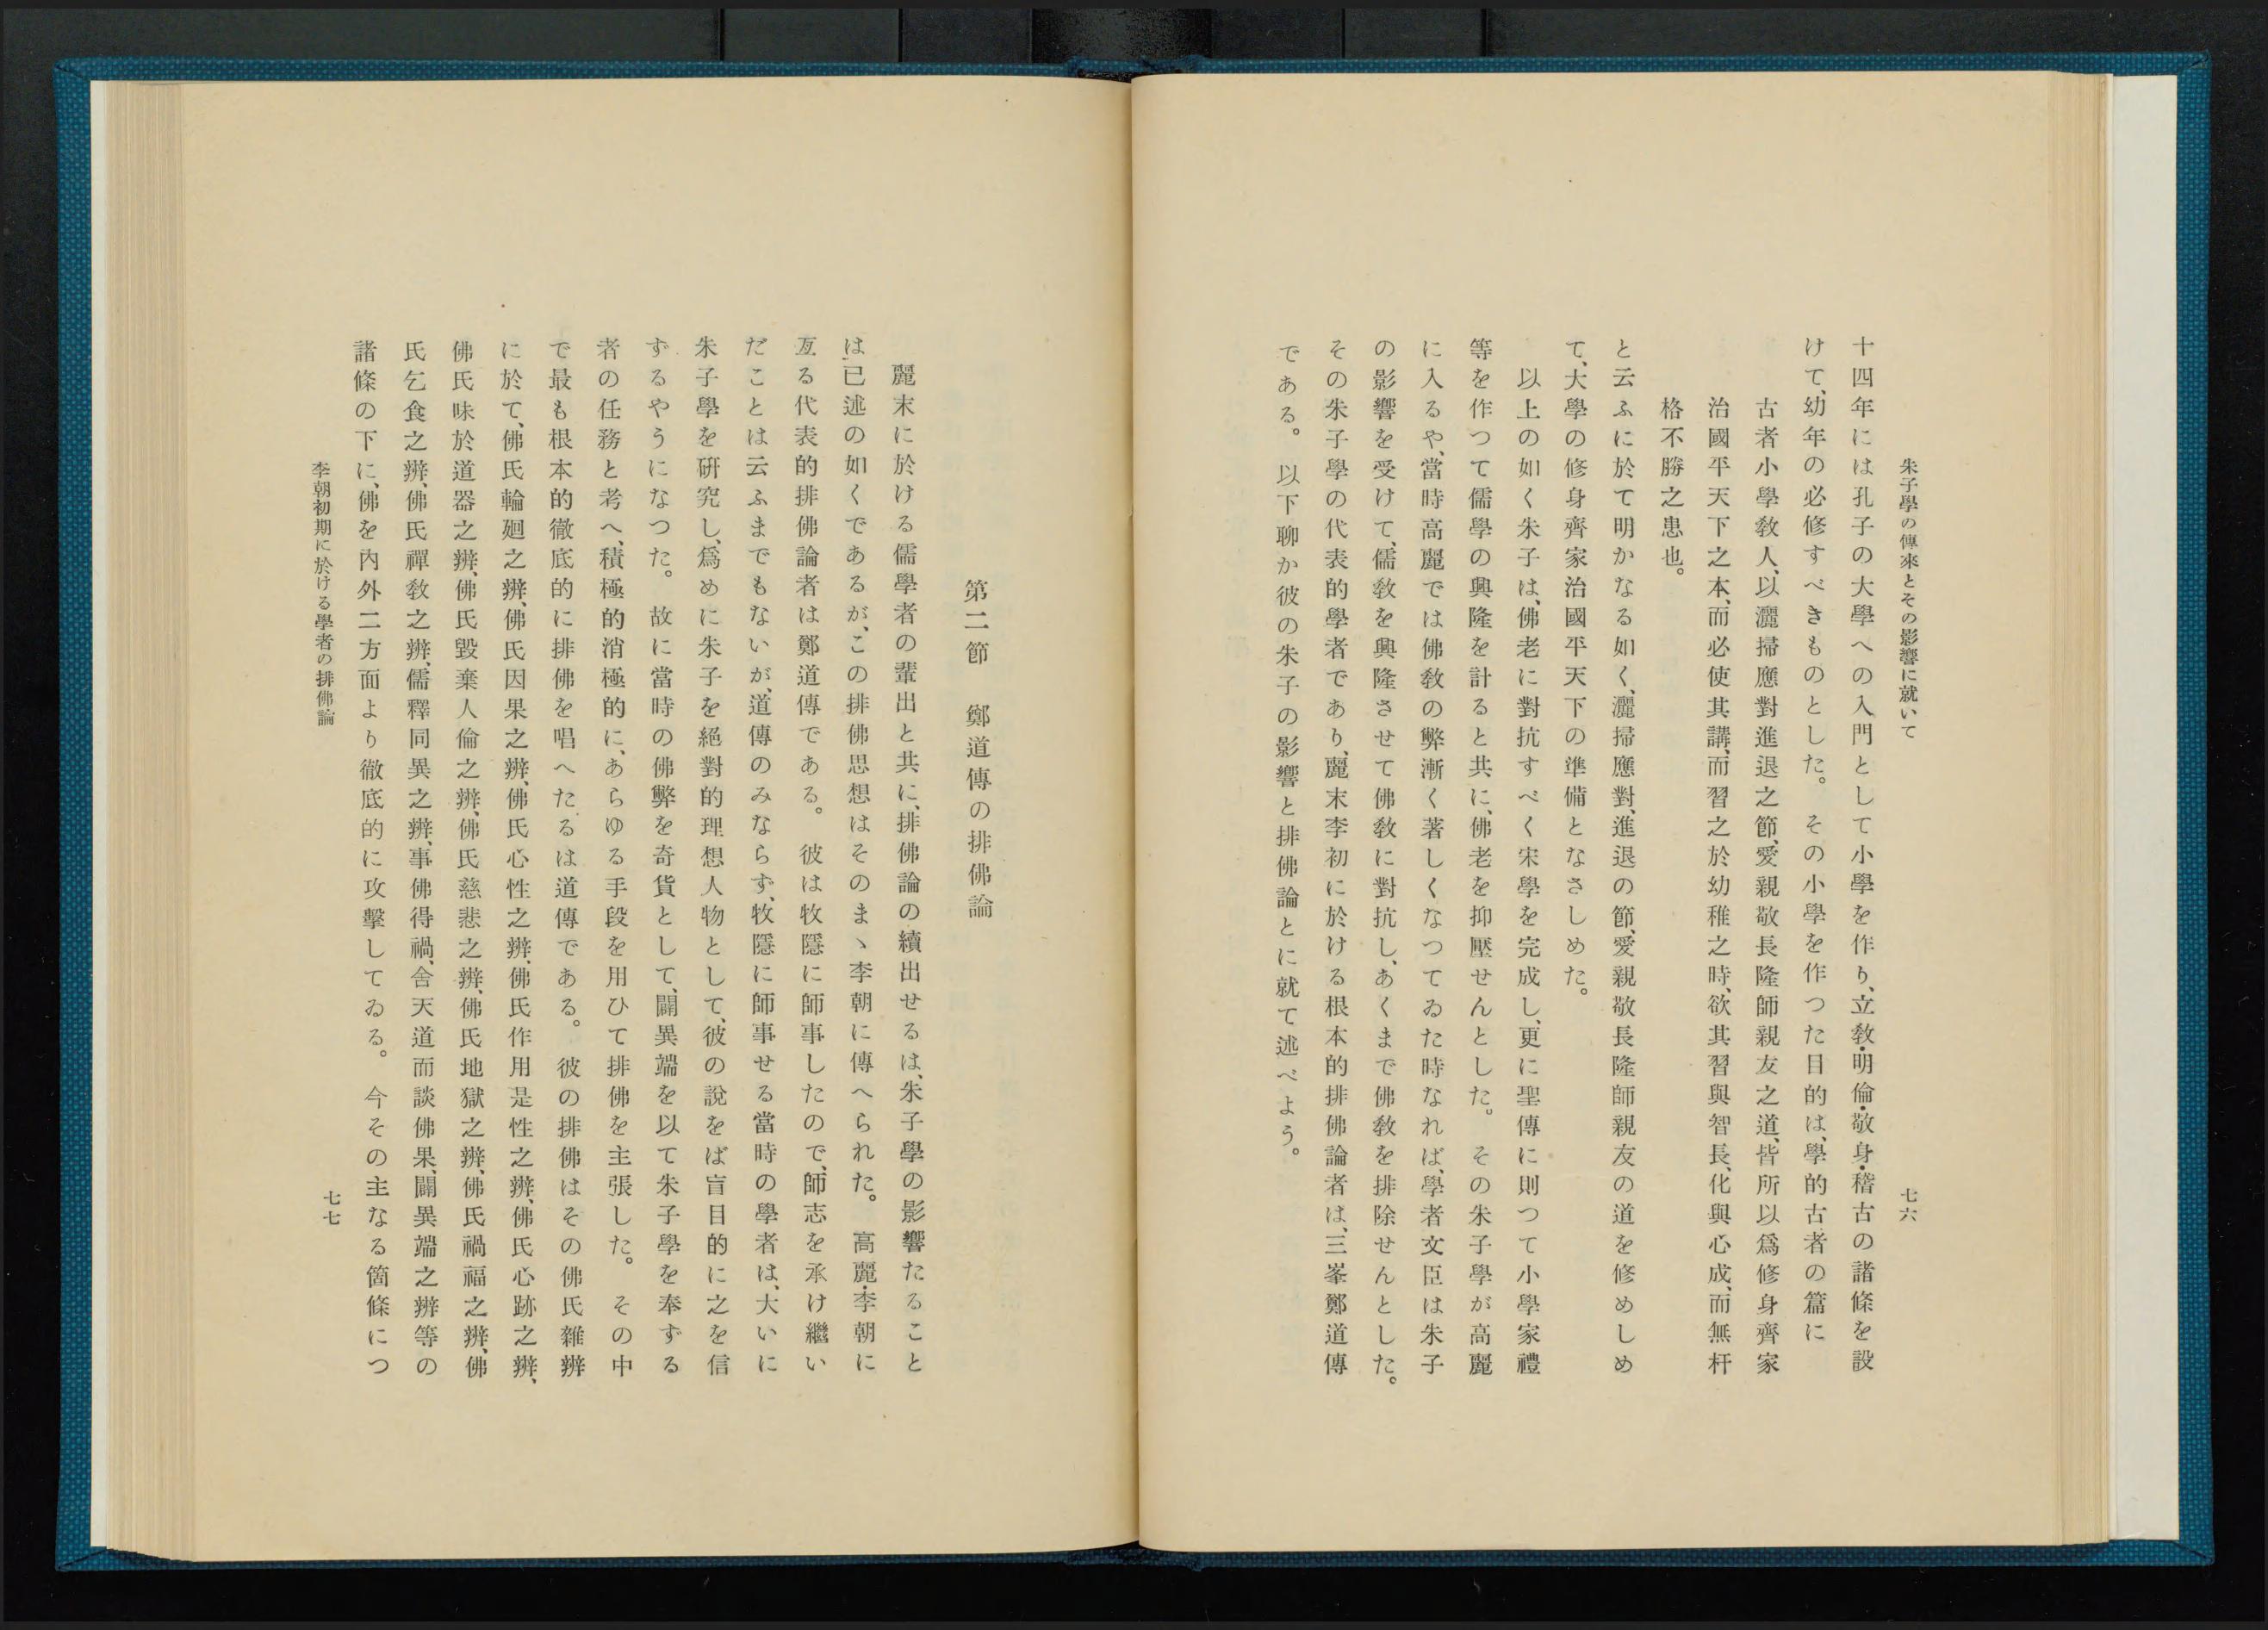 朱子學の傳來とその影響に就いて
七六
十四年には孔子の大學への入門として小學を作り、立敎・明倫・敬身・稽古の諸條を設
けて、幼年の必修すべきものとした。その小學を作つた目的は、學的古者の篇に
古者小學敎人、以灑掃應對進退之節、愛親敬長隆師親友之道、皆所以爲修身齊家
治國平天下之本、而必使其講、而習之於幼稚之時、欲其習與智長、化與心成、而無杆
格不勝之患也。
と云ふに於て明かなる如く、灑掃應對、進退の節、愛親敬長隆師親友の道を修めしめ
て、大學の修身齊家治國平天下の準備となさしめた。
以上の如く朱子は、佛老に對抗すべく宋學を完成し、更に聖傳に則つて小學家禮
等を作つて儒學の興隆を計ると共に、佛老を抑壓せんとした。その朱子學が高麗
に入るや、當時高麗では佛敎の弊漸く著しくなつてゐた時なれば、學者文臣は朱子
の影響を受けて、儒敎を興隆させて佛敎に對抗し、あくまで佛敎を排除せんとした。
その朱子學の代表的學者であり、麗末李初に於ける根本的排佛論者は、三峯鄭道傳
である。以下聊か彼の朱子の影響と排佛論とに就て述べよう。
第二節　鄭道傳の排佛論
麗末に於ける儒學者の輩出と共に、排佛論の續出せるは、朱子學の影響たること
は、已述の如くであるが、この排佛思想はそのまゝ李朝に傳へられた。高麗・李朝に
亙る代表的排佛論者は鄭道傳である。彼は牧隱に師事したので、師志を承け繼い
だことは云ふまでもないが、道傳のみならず、牧隱に師事せる當時の學者は、大いに
朱子學を研究し、爲めに朱子を絕對的理想人物として、彼の說をば盲目的に之を信
ずるやうになつた。故に當時の佛弊を奇貨として、闢異端を以て朱子學を奉ずる
者の任務と考へ、積極的消極的に、あらゆる手段を用ひて排佛を主張した。その中
で最も根本的徹底的に排佛を唱へたるは道傳である。彼の排佛はその佛氏雜辨
に於て、佛氏輪廻之辨、佛氏因果之辨、佛氏心性之辨、佛氏作用是性之辨、佛氏心跡之辨、
佛氏昧於道器之辨、佛氏毀棄人倫之辨、佛氏慈悲之辨、佛氏地獄之辨、佛氏禍福之辨、佛
氏乞食之辨、佛氏禪敎之辨、儒釋同異之辨、事佛得禍、舍天道而談佛果、闢異端之辨等の
諸條の下に、佛を內外二方面より徹底的に攻擊してゐる。今その主なる箇條につ
李朝初期に於ける學者の排佛論
七七